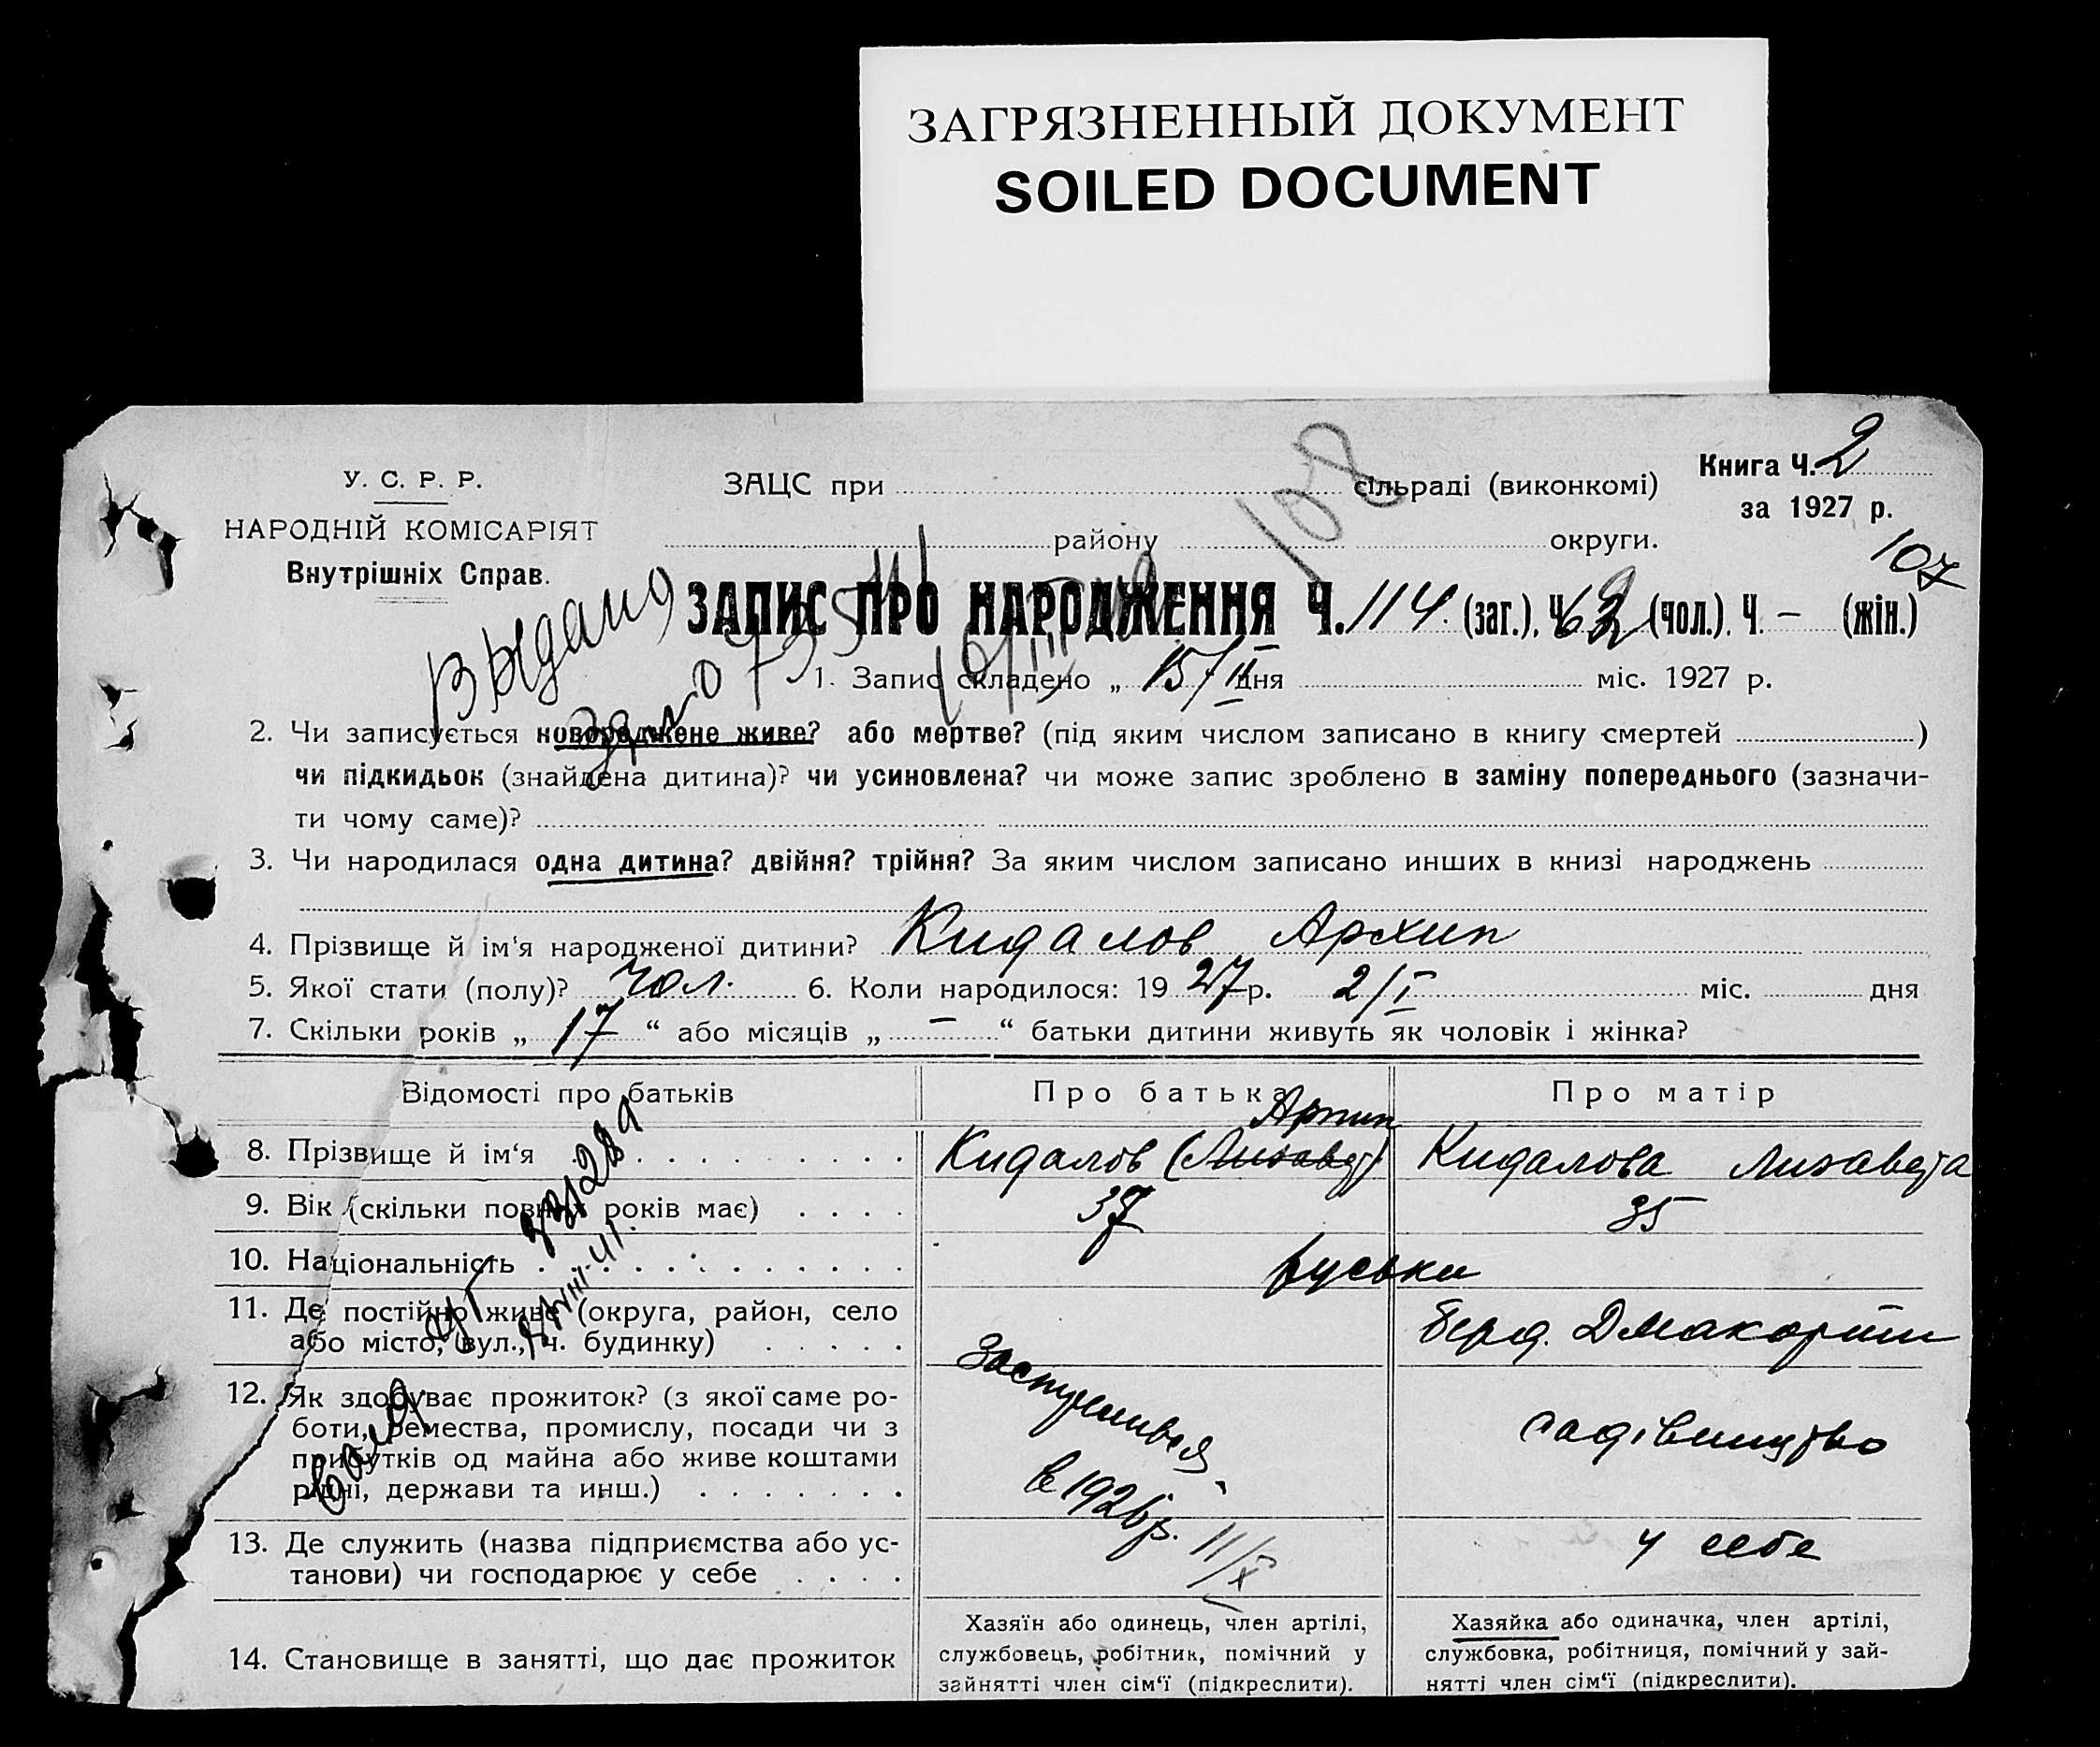 ЗАГРЯЗНЕННЫЙ ДОКУМЕНТ
SOILED DOCUMENT
У. С. Р. Р.
НАРОДНІЙ КОМІСАРІЯТ
Внутрішніх Справ.
ЗАЦС при сільраді (виконкомі)
району округи.
Книга Ч. 2
за 1927 р.
108
107
Выдано
ЗАПИС ПРО НАРОДЖЕННЯ Ч. 114 (заг.), Ч. 62 (чол.), Ч. – (жін.)
1. Запис складено „ 15/II дня міс. 1927 р.
2. Чи записується новороджене живе? або мертве? (під яким числом записано в книгу смертей )
чи підкидьок (знайдена дитина)? чи усиновлена? чи може запис зроблено в заміну попереднього (зазначи-
ти чому саме)?
3. Чи народилася одна дитина? двійня? трійня? За яким числом записано инших в книзі народжень
4. Прізвище й ім'я народженої дитини? Кидалов Архип
5. Якої стати (полу)? чол. 6. Коли народилося: 19 27 р. 2/I міс. дня
7. Скільки років „ 17 “ або місяців „ – “ батьки дитини живуть як чоловік і жінка?
Відомості про батьків Про батька Про матір
8. Прізвище й ім'я Кидалов (Лизавета) Архип Кидалова Лизавета
9. Вік (скільки повних років має) 37 35
10. Національність руськи
11. Де постійно живе (округа, район, село
або місто, вул., ч. будинку) Берд.
12. Як здобуває прожиток? (з якої саме ро-
боти, ремества, промислу, посади чи з
прибутків од майна або живе коштами
рідні, держави та инш.)
в 1926 р. 11/X
садівництво
13. Де служить (назва підприємства або ус-
танови) чи господарює у себе у себе
14. Становище в занятті, що дає прожиток
Хазяїн або одинець, член артілі,
службовець, робітник, помічний у
зайнятті член сім'ї (підкреслити).
Хазяйка або одиначка, член артілі,
службовка, робітниця, помічний у зай-
нятті член сім'ї (підкреслити).